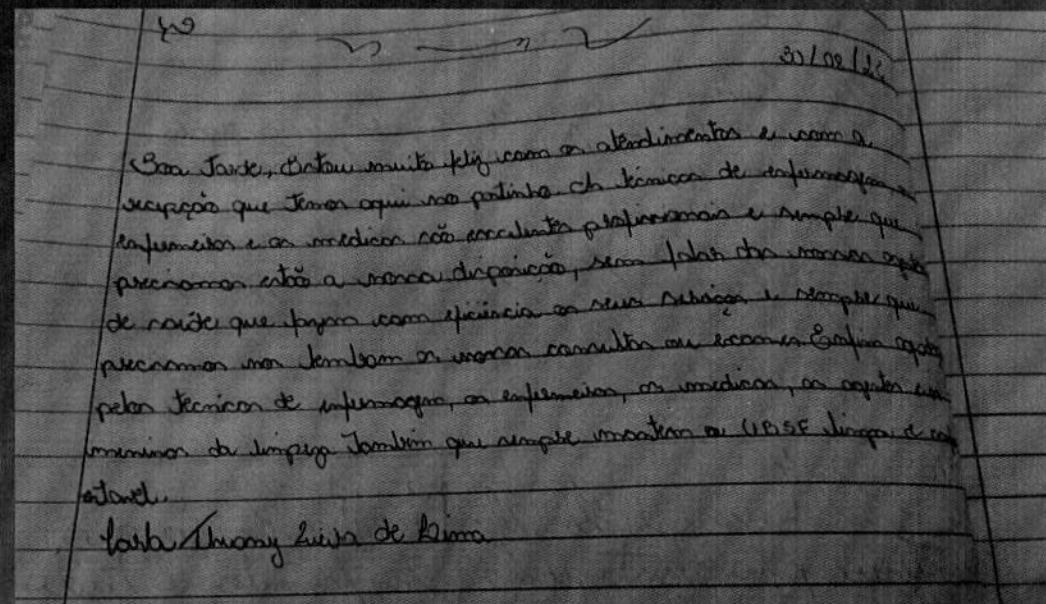 Boa Tarde, Estou muito feliz com os atendimentos e com a
recepção que temos aqui no postinho os técnicos de enfermagem
enfermeiros e os médicos são excelentes profissionais e sempre que
precisamos estão a nossa disposição, sem falar dos nossos
de saúde que fazem com eficiência os seus serviços e sempre que
precisamos nos lembram as nossas consultas ou exames Enfim
pelos técnicos de enfermagem, os enfermeiros, os médicos, os agentes
meninos da limpeza Também que sempre mantem a UBSF limpa e
Carla de Lima